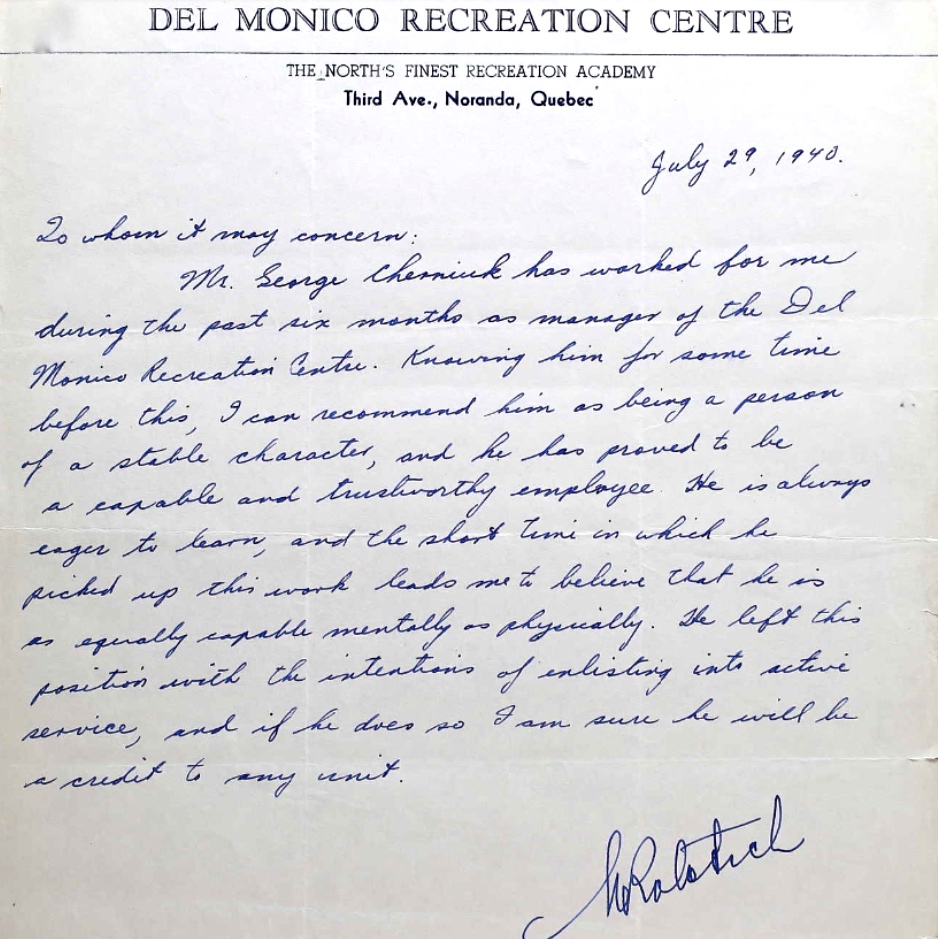 DEL MONICO RECREATION CENTRE
THE NORTH'S FINEST RECREATION ACADEMY
Third Ave., Noranda, Quebec
July 29, 1940.
To whom it may concern:
Mr. George Cherniuk has worked for me
during the past six months as manager of the Del
Monico Recreation Centre. Knowing him for some time
before this, I can recommend him as being a person
of a stable character, and he has proved to be
a capable and trustworthy employee. He is always
eager to learn, and the short time in which he
picked up this work leads me to believe that he is
as equally capable mentally as physically. He left this
position with the intentions of enlisting into active
service, and if he does so I am sure he will be
a credit to any unit.